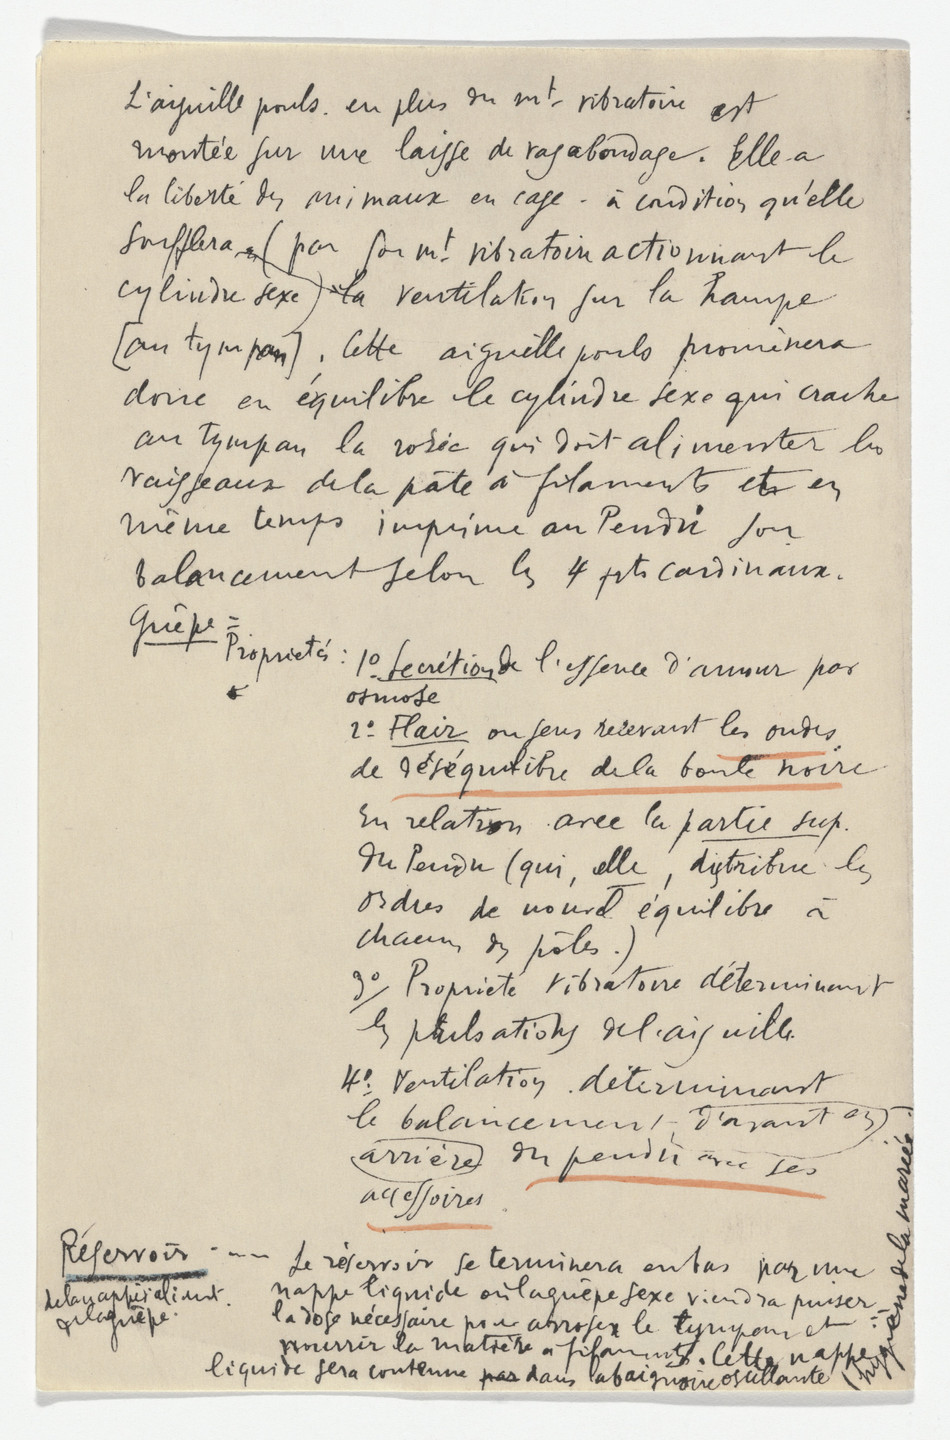 L'aiguille pouls. en plus du mt vibratoire est
montée sur une laisse de vagabondage. Elle a
la liberté des animaux en cage - à condition qu'elle
soufflera (par son mt. vibratoire actionnant le
cylindre sexe) la ventilation sur la hampe
[au tympan]. Cette aiguille pouls promènera
donc en équilibre le cylindre sexe qui crache
au tympan la rosée qui doit alimenter les
vaisseaux de la pâte à filaments et en
même temps imprime au Pendu son
balancement selon les 4 pts cardinaux.
Guêpe =
Proprietés : 1º Secrétion de l'essence d'amour par
osmose
2º Flair ou sens recevant les ondes
de déséquilibre de la boule noire
En relation avec la partie sup.
du Pendu (qui, elle, distribue les
ordres de nouvel équilibre à
chacun des pôles.)
3º/ Proprieté vibratoire déterminant
les pulsations de l'aiguille.
4º. Ventilation déterminant
le balancement, (d'avant en
arrière) du pendu avec ses
accessoires.
Réservoir - -- Le réservoir se terminera en bas par une
nappe liquide où la guêpe sexe viendra puiser
la dose nécessaire pour arroser le tympan et
nourrir la matière à filaments. Cette nappe
liquide sera contenue par dans la baignoire oscillante
(hygiène de la mariée.
de la guêpe.